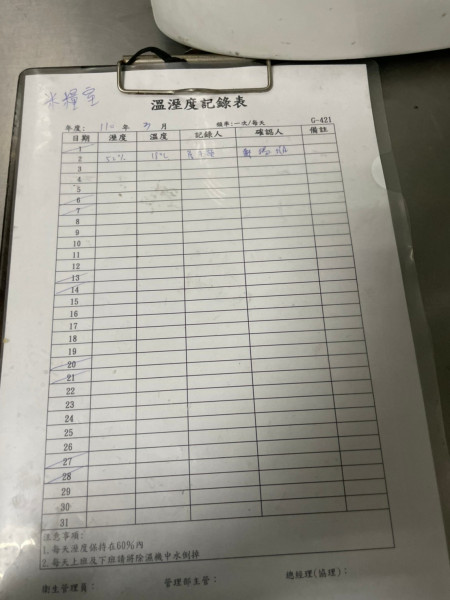 米糧室
溫溼度記錄表
年度: 110 年 3 月 頻率:一次/每天 G-421
日期 溼度 溫度 記錄人 確認人 備註
1
2 52% 18℃
3
4
5
6
7
8
9
10
11
12
13
14
15
16
17
18
19
20
21
22
23
24
25
26
27
28
29
30
31
注意事項:
1.每天溼度保持在60%內
2.每天上班及下班請將除溼機中水倒掉
衛生管理員: 管理部主管: 總經理(協理):